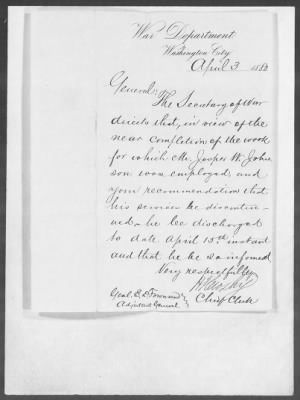 War Department
Washington City
April 3 18
General:
The Secretary of War
directs that, in view of the
near completion of the work
for which Mr. Jasper W. John
son was employed and
your recommendation that
his services be discontin-
ued, he be discharged
to date April 15th instant
and that he be so informed
Very respectfully
Chief Clerk
Genl. E. D. Townsend
Adjutant General